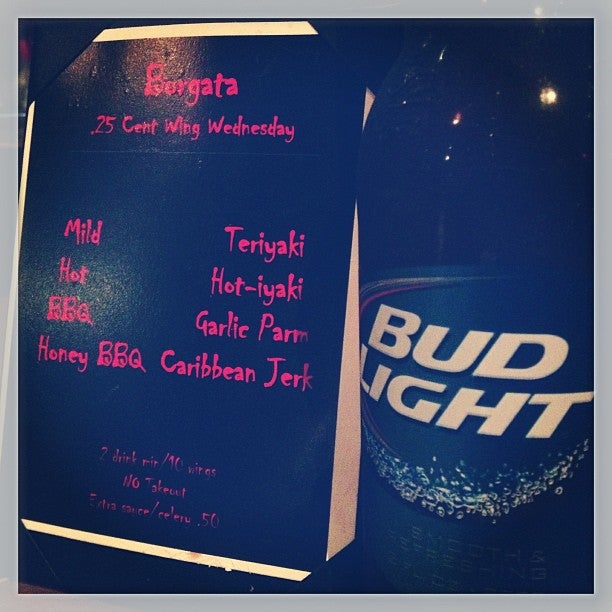 Borgata
.25 Cent Wing Wednesday
Mild
Hot
BBQ
Honey BBQ
Teriyaki
Hot-iyaki
Garlic Parm
Caribbean Jerk
2 drink min/10 wings
NO Takeout
Extra sauce/celery .50
BUD
LIGHT
SMOOTH &